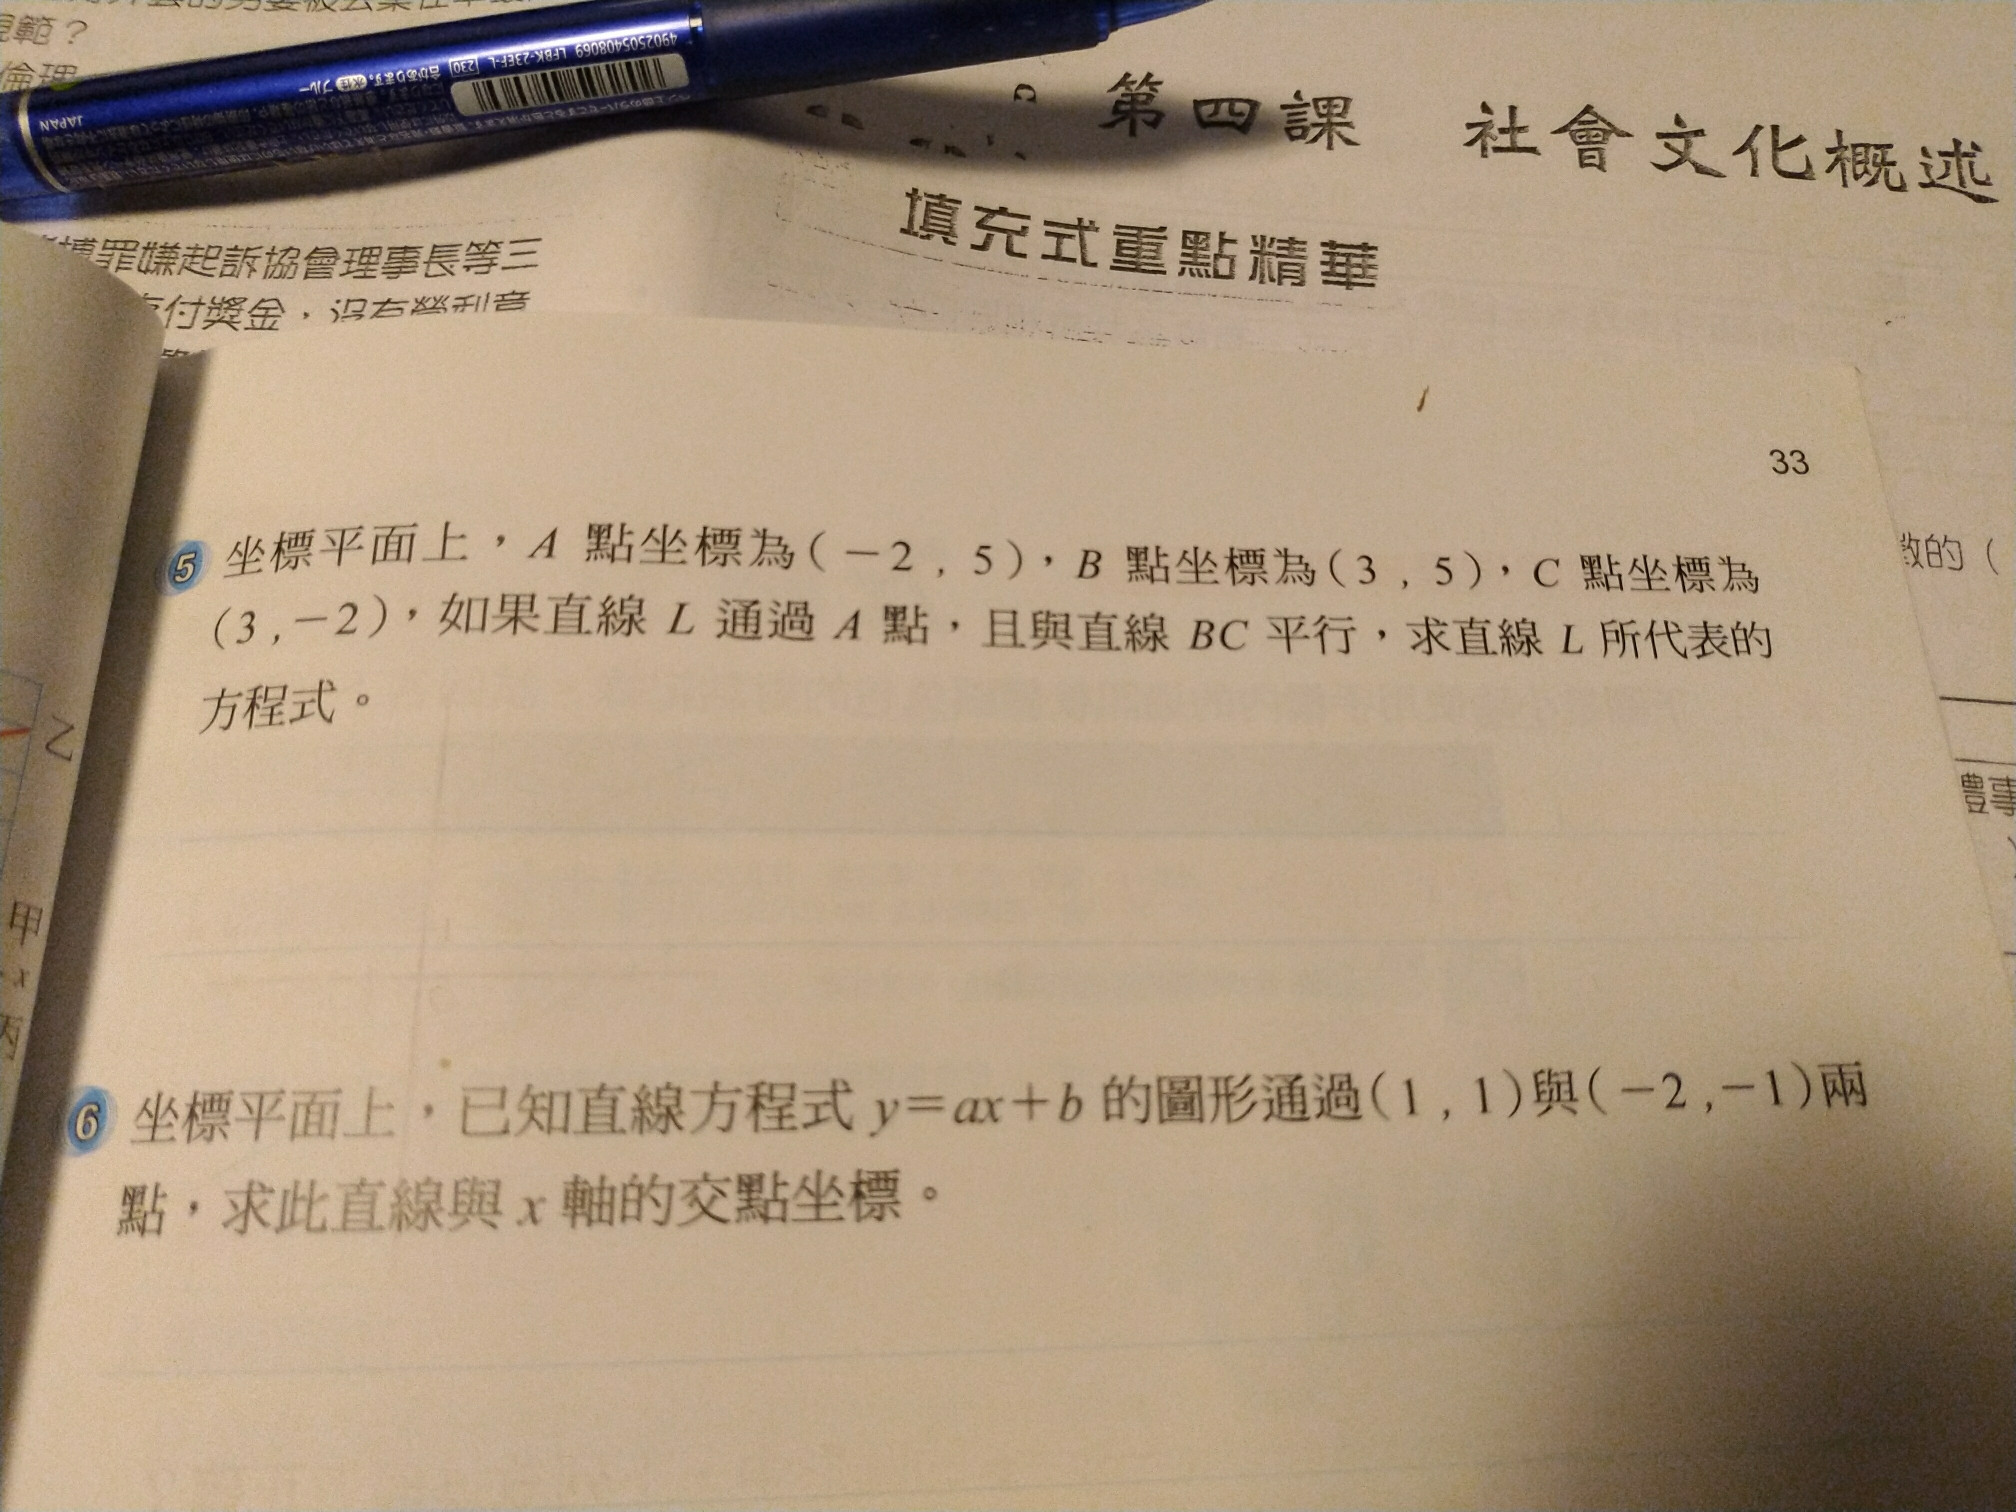 範？
倫理
4902505408069 LFBK-23EF-L 230
JAPAN
第四課 社會文化概述
填充式重點精華
罪嫌起訴協會理事長等三
付獎金，沒有營利意
33
5 坐標平面上，A 點坐標為(－2 , 5)，B 點坐標為(3 , 5)，C 點坐標為
(3 ,－2)，如果直線 L 通過 A 點，且與直線 BC 平行，求直線 L 所代表的
方程式。
乙
甲
x
丙
的（
豐事
6 坐標平面上，已知直線方程式 y=ax+b 的圖形通過(1 , 1)與(－2 ,－1)兩
點，求此直線與 x 軸的交點坐標。